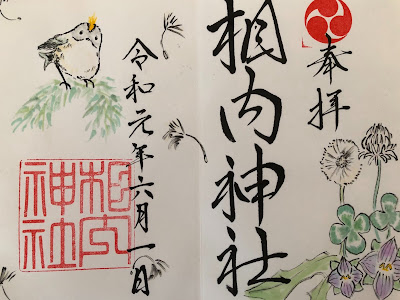 奉拝
相内神社
令和元年六月一日
相内
神社